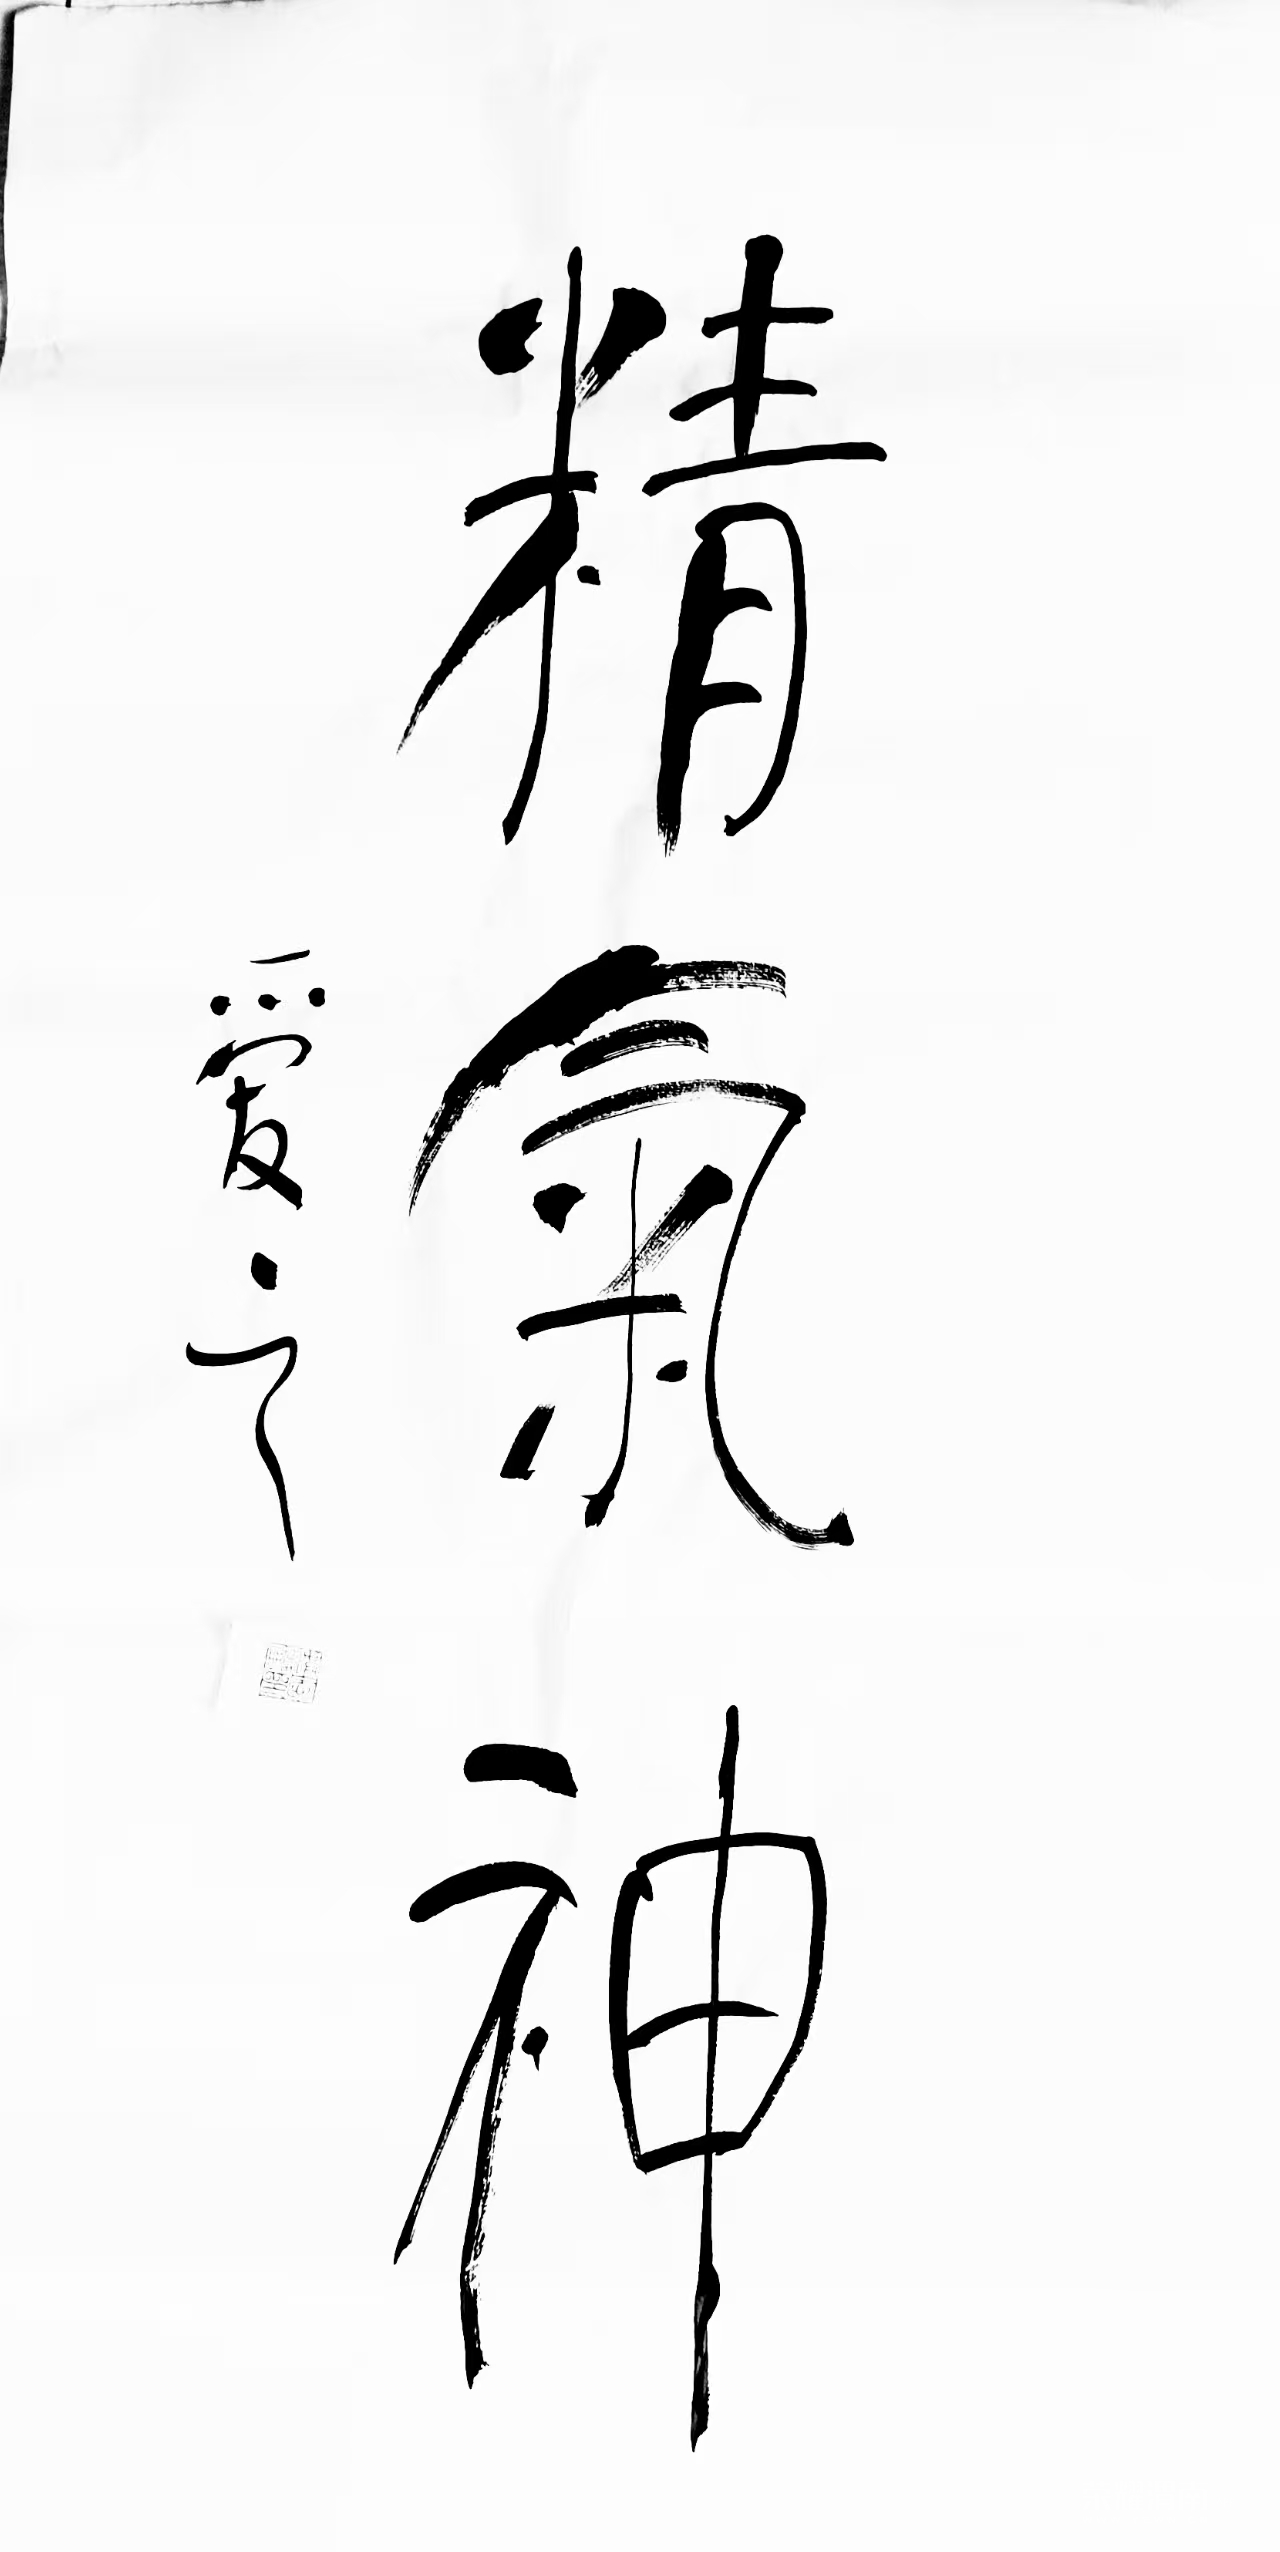 精氣神
爱之